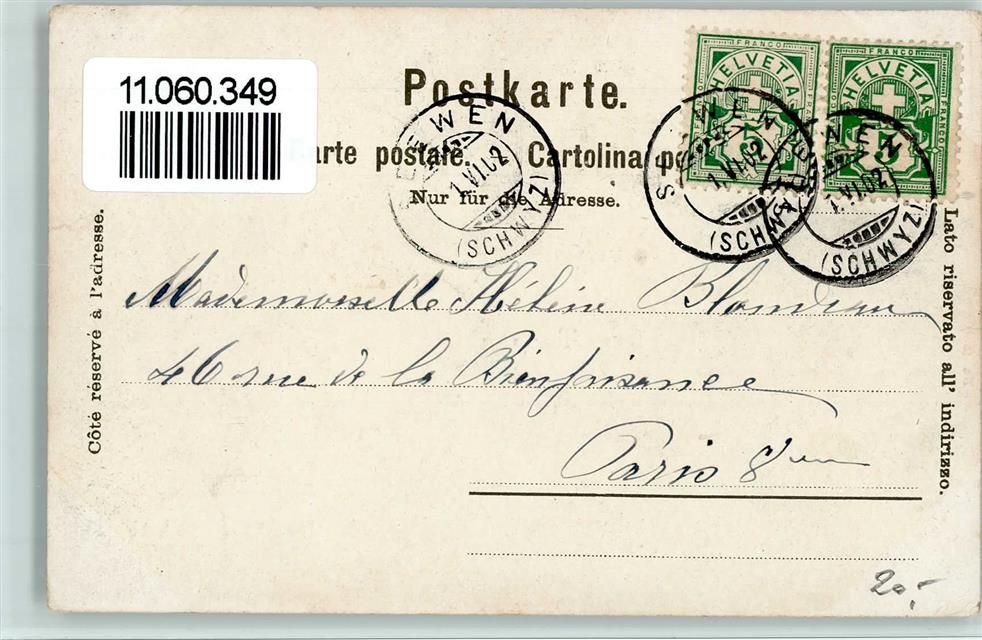 11.060.349
Postkarte.
Carte postale. Cartolina po
Nur für die Adresse.
Côté réservé à l'adresse.
Lato riservato all' indirizzo.
FRANCO
HELVETIA
5
FRANCO
HELVETIA
5
SEEWEN
1.VI.02
(SCHWYZ)
SEEWEN
1.VI.02
(SCHWYZ)
SEEWEN
1.VI.02
(SCHWYZ)
Mademoiselle Hélène Blondeau
46 rue de la Bienfaisance
Paris 8ème
20,-